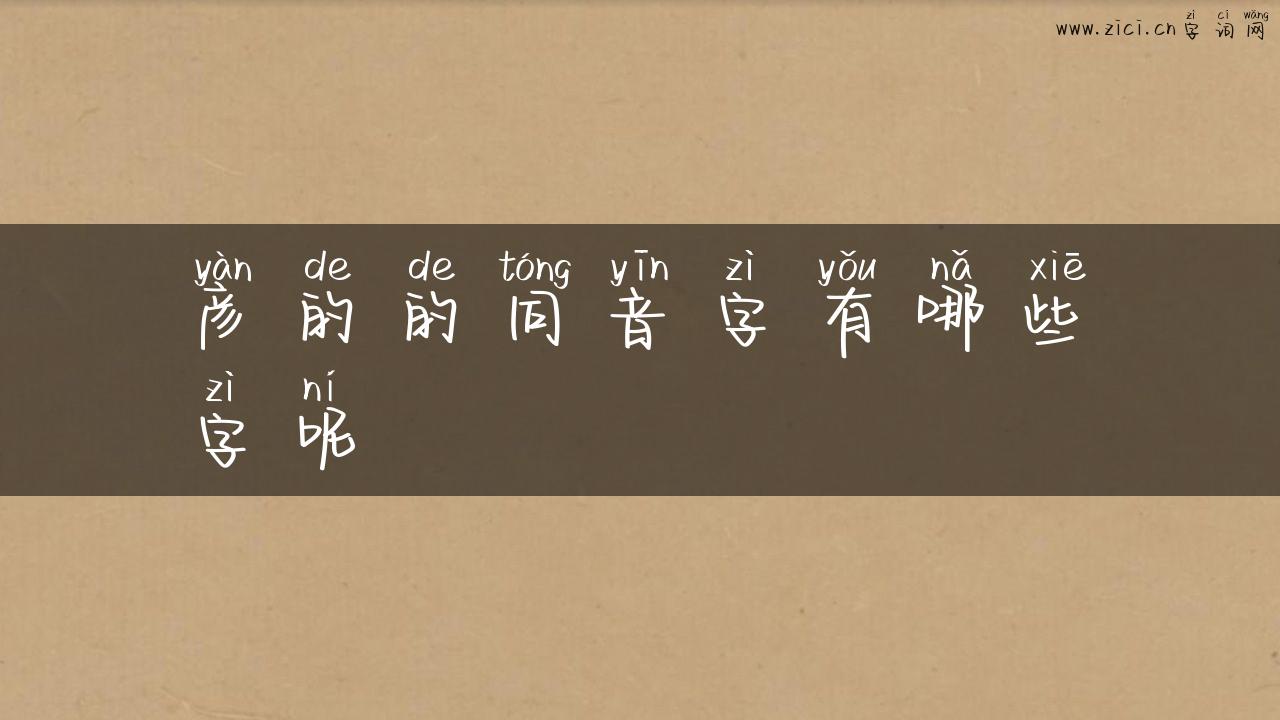 zì cí wǎng
www.zici.cn字词网
yàn de de tóng yīn zì yǒu nǎ xiē
彦的的同音字有哪些
zì ní
字呢